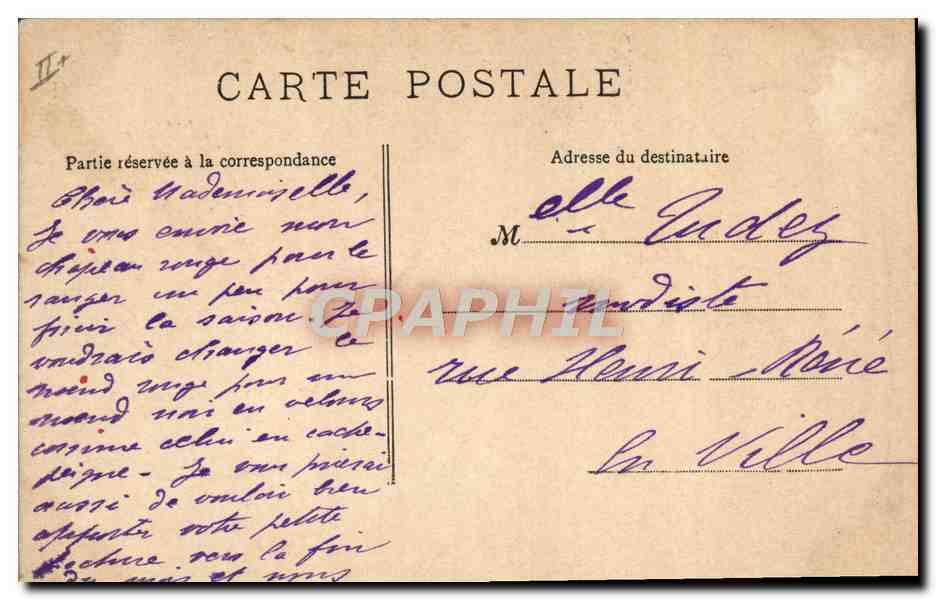 II+
CARTE POSTALE
Partie réservée à la correspondance
Chère Mademoiselle,
Je vous envoie mon
chapeau rouge pour le
ranger un peu pour
finir la saison. Je
voudrais changer le
nœud rouge pour un
nœud noir en velours
comme celui en cache-
peigne - Je vous prierai
aussi de vouloir bien
apporter votre petite
facture vers la fin
du mois et nous
Adresse du destinataire
Melle Tudez
modiste
rue Henri-Réné
En Ville
CPAPHIL